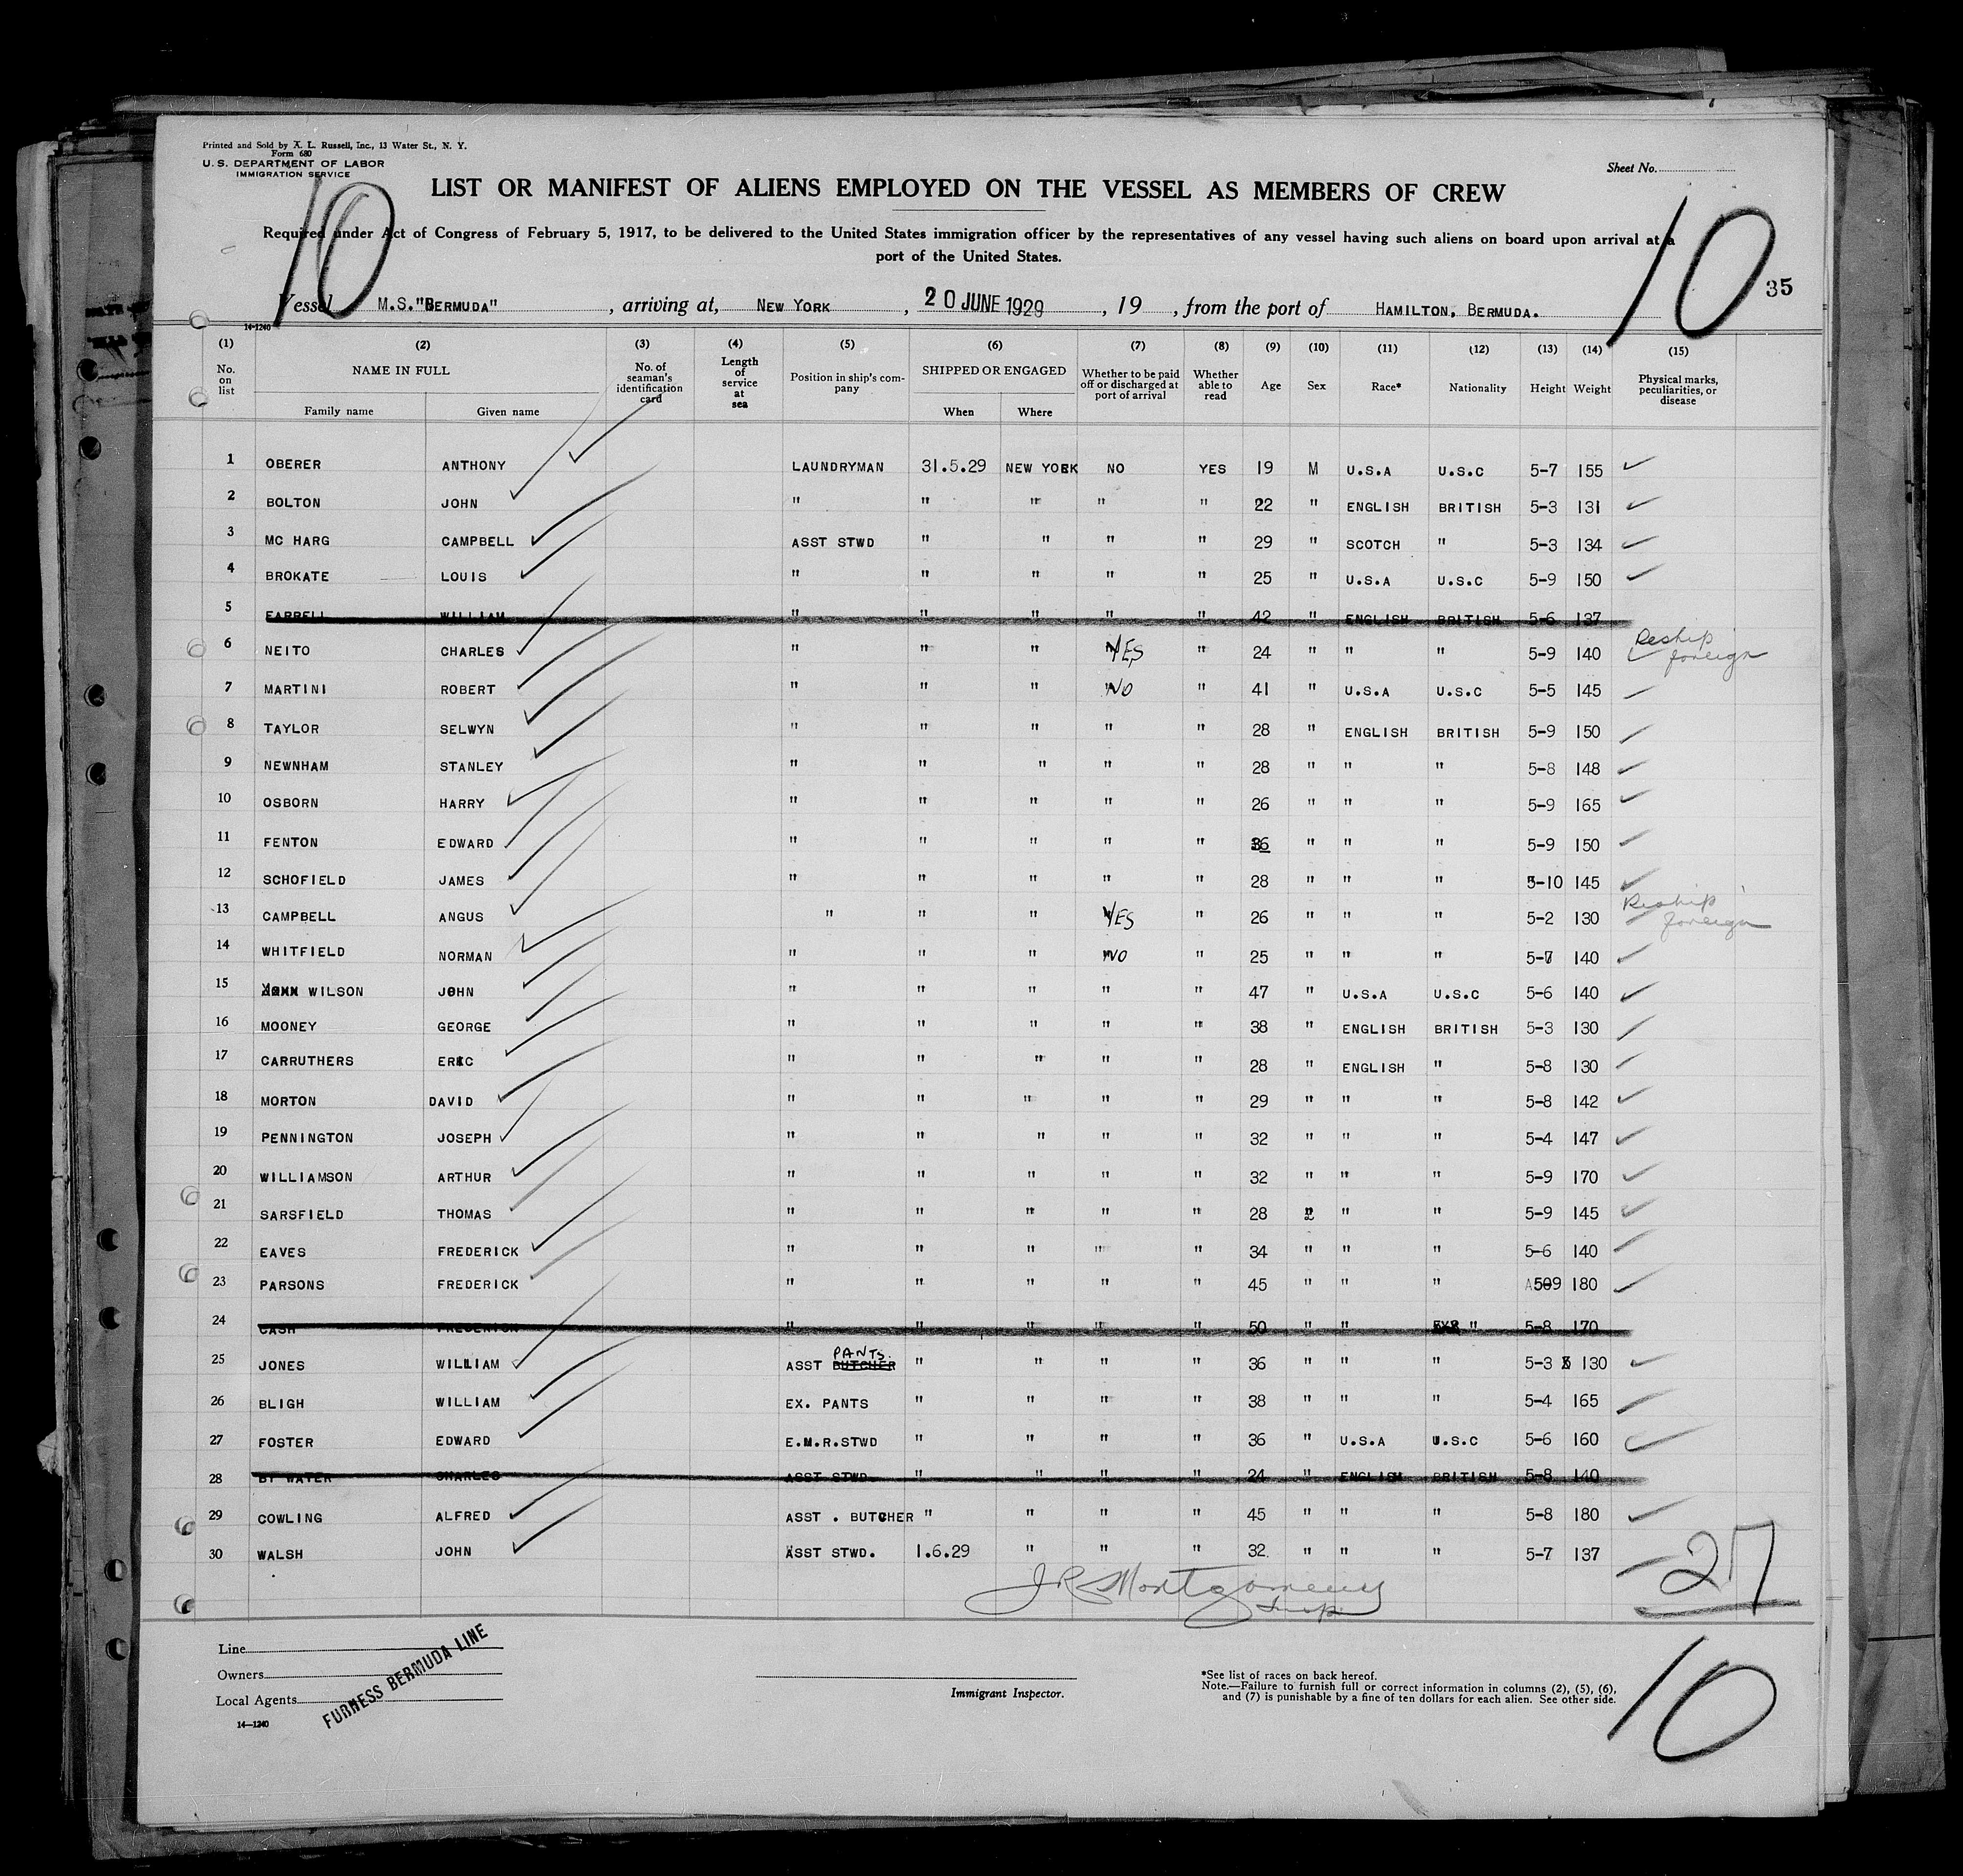 Printed and Sold by A. L. Russell, Inc., 13 Water St., N. Y.
Form 680
U. S. DEPARTMENT OF LABOR
IMMIGRATION SERVICE
Sheet No.
10
10
35
LIST OR MANIFEST OF ALIENS EMPLOYED ON THE VESSEL AS MEMBERS OF CREW
Required under Act of Congress of February 5, 1917, to be delivered to the United States immigration officer by the representatives of any vessel having such aliens on board upon arrival at a
port of the United States.
Vessel M.S."BERMUDA" , arriving at, NEW YORK , 20 JUNE 1929 , 19 , from the port of HAMILTON, BERMUDA.
14-1240
(1) (2) (3) (4) (5) (6) (7) (8) (9) (10) (11) (12) (13) (14) (15)
No. on list NAME IN FULL Family name Given name No. of seaman's identification card Length of service at sea Position in ship's company SHIPPED OR ENGAGED When Where Whether to be paid off or discharged at port of arrival Whether able to read Age Sex Race* Nationality Height Weight Physical marks, peculiarities, or disease
1 OBERER ANTHONY LAUNDRYMAN 31.5.29 NEW YORK NO YES 19 M U.S.A U.S.C 5-7 155
2 BOLTON JOHN " " " " " 22 " ENGLISH BRITISH 5-3 131
3 MC HARG CAMPBELL ASST STWD " " " " 29 " SCOTCH " 5-3 134
4 BROKATE LOUIS " " " " " 25 " U.S.A U.S.C 5-9 150
5 FARRELL WILLIAM " " " " " 42 " ENGLISH BRITISH 5-6 137
6 NEITO CHARLES " " " YES " 24 " " " 5-9 140 Reship foreign
7 MARTINI ROBERT " " " NO " 41 " U.S.A U.S.C 5-5 145
8 TAYLOR SELWYN " " " " " 28 " ENGLISH BRITISH 5-9 150
9 NEWNHAM STANLEY " " " " " 28 " " " 5-8 148
10 OSBORN HARRY " " " " " 26 " " " 5-9 165
11 FENTON EDWARD " " " " " 36 " " " 5-9 150
12 SCHOFIELD JAMES " " " " " 28 " " " 5-10 145
13 CAMPBELL ANGUS " " " YES " 26 " " " 5-2 130 Reship foreign
14 WHITFIELD NORMAN " " " NO " 25 " " " 5-7 140
15 WILSON JOHN " " " " " 47 " U.S.A U.S.C 5-6 140
16 MOONEY GEORGE " " " " " 38 " ENGLISH BRITISH 5-3 130
17 CARRUTHERS ERIC " " " " " 28 " ENGLISH " 5-8 130
18 MORTON DAVID " " " " " 29 " " " 5-8 142
19 PENNINGTON JOSEPH " " " " " 32 " " " 5-4 147
20 WILLIAMSON ARTHUR " " " " " 32 " " " 5-9 170
21 SARSFIELD THOMAS " " " " " 28 " " " 5-9 145
22 EAVES FREDERICK " " " " " 34 " " " 5-6 140
23 PARSONS FREDERICK " " " " " 45 " " " 509 180
24 CASH FREDERICK " " " " " 50 " " " 5-8 170
25 JONES WILLIAM ASST BUTCHER PANTS. " " " " 36 " " " 5-3 130
26 BLIGH WILLIAM EX. PANTS " " " " 38 " " " 5-4 165
27 FOSTER EDWARD E.M.R.STWD " " " " 36 " U.S.A U.S.C 5-6 160
28 BY WATER CHARLES ASST STWD " " " " 24 " ENGLISH BRITISH 5-8 140
29 COWLING ALFRED ASST . BUTCHER " " " " 45 " " " 5-8 180
30 WALSH JOHN ASST STWD. 1.6.29 " " " 32 " " " 5-7 137
27
J R Montgomery
Insp
Line
Owners
Local Agents
FURNESS BERMUDA LINE
14-1240
Immigrant Inspector.
*See list of races on back hereof.
Note.—Failure to furnish full or correct information in columns (2), (5), (6),
and (7) is punishable by a fine of ten dollars for each alien. See other side.
10